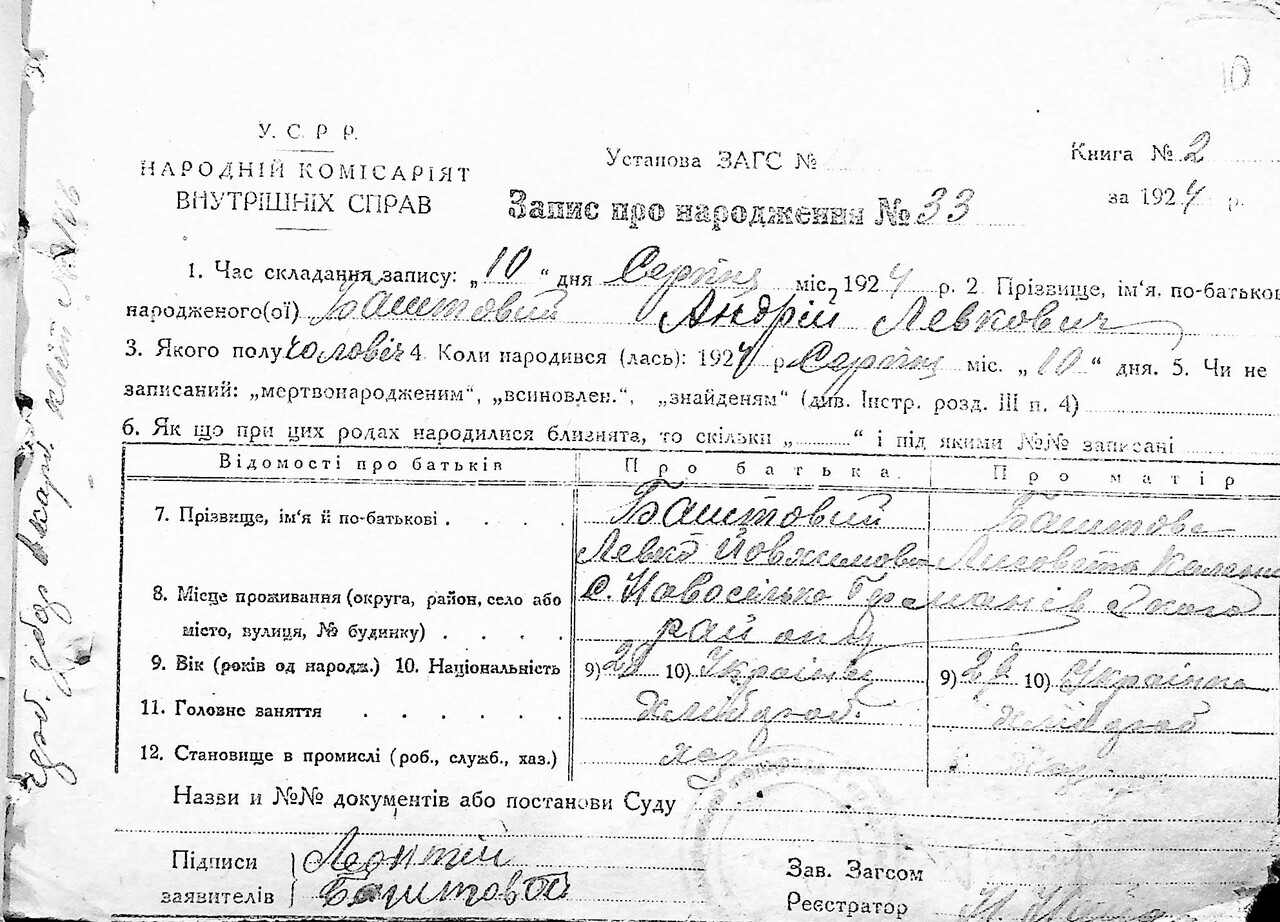 10
У. С. Р. Р.
НАРОДНІЙ КОМІСАРІЯТ
ВНУТРІШНІХ СПРАВ
Установа ЗАГС №
Книга № 2
Запис про народження № 33
за 1924 р.
1. Час складання запису: „10“ дня Серпня міс. 1924 р. 2. Прізвище, ім‘я, по-батькові
народженого(ої) Баштовий Андрій Левкович
3. Якого полу чоловіч 4. Коли народився (лась): 1924 р. Серпня міс. „10“ дня. 5. Чи не
записаний: „мертвонародженим“, „всиновлен.“, „знайденям“ (див. Інстр. розд. III п. 4)
6. Як що при цих родах народилися близнята, то скільки „ “ і під якими №№ записані
Відомості про батьків Про батька. Про матір
7. Прізвище, ім‘я й по-батькові . . . . Баштовий Баштова
Левко Йовхимович Лисовета
8. Місце проживання (округа, район, село або С. Новосілько Германівського
місто, вулиця, № будинку) . . . . району
9. Вік (років од народж.) 10. Національність 9) 10) Українец 9) 27 10) Українка
11. Головне заняття . . . . . . хлібороб. хлібороб
12. Становище в промислі (роб., служб., хаз.) хаз
Назви и №№ документів або постанови Суду
Підписи Леонтій
заявителів Баштовой
Зав. Загсом
Реєстратор